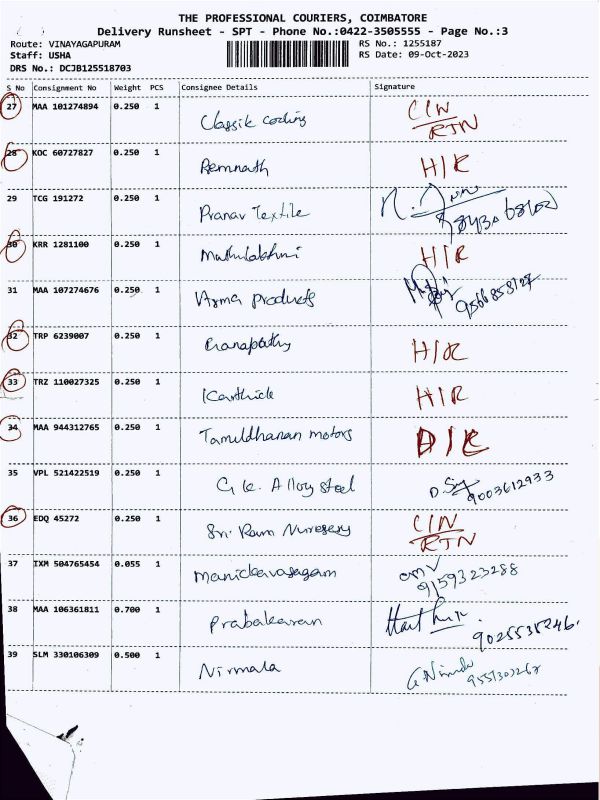 THE PROFESSIONAL COURIERS, COIMBATORE
Delivery Runsheet - SPT - Phone No.:0422-3505555 - Page No.:3
Route: VINAYAGAPURAM RS No.: 1255187
Staff: USHA RS Date: 09-Oct-2023
DRS No.: DCJB125518703
S No Consignment No Weight PCS Consignee Details Signature
27 MAA 101274894 0.250 1 Classik coding C/N
RTN
28 KOC 60727827 0.250 1 Remnath H/R
29 TCG 191272 0.250 1 Pranav Textile
30 KRR 1281100 0.250 1 Muthulakshmi H/R
31 MAA 107274676 0.250 1 Varma products 9566858127
32 TRP 6239007 0.250 1 Ganapathy H/R
33 TRZ 110027325 0.250 1 Karthick H/R
34 MAA 944312765 0.250 1 Tamildhanan motors D/R
35 VPL 521422519 0.250 1 G.K. Alloy steel 9003612933
36 EDQ 45272 0.250 1 Sri Ram Nuresery C/N
RTN
37 IXM 504765454 0.055 1 Manickavasagam 9159323288
38 MAA 106361811 0.700 1 Prabakaran 9025538246.
39 SLM 330106309 0.500 1 Nirmala 9551302267